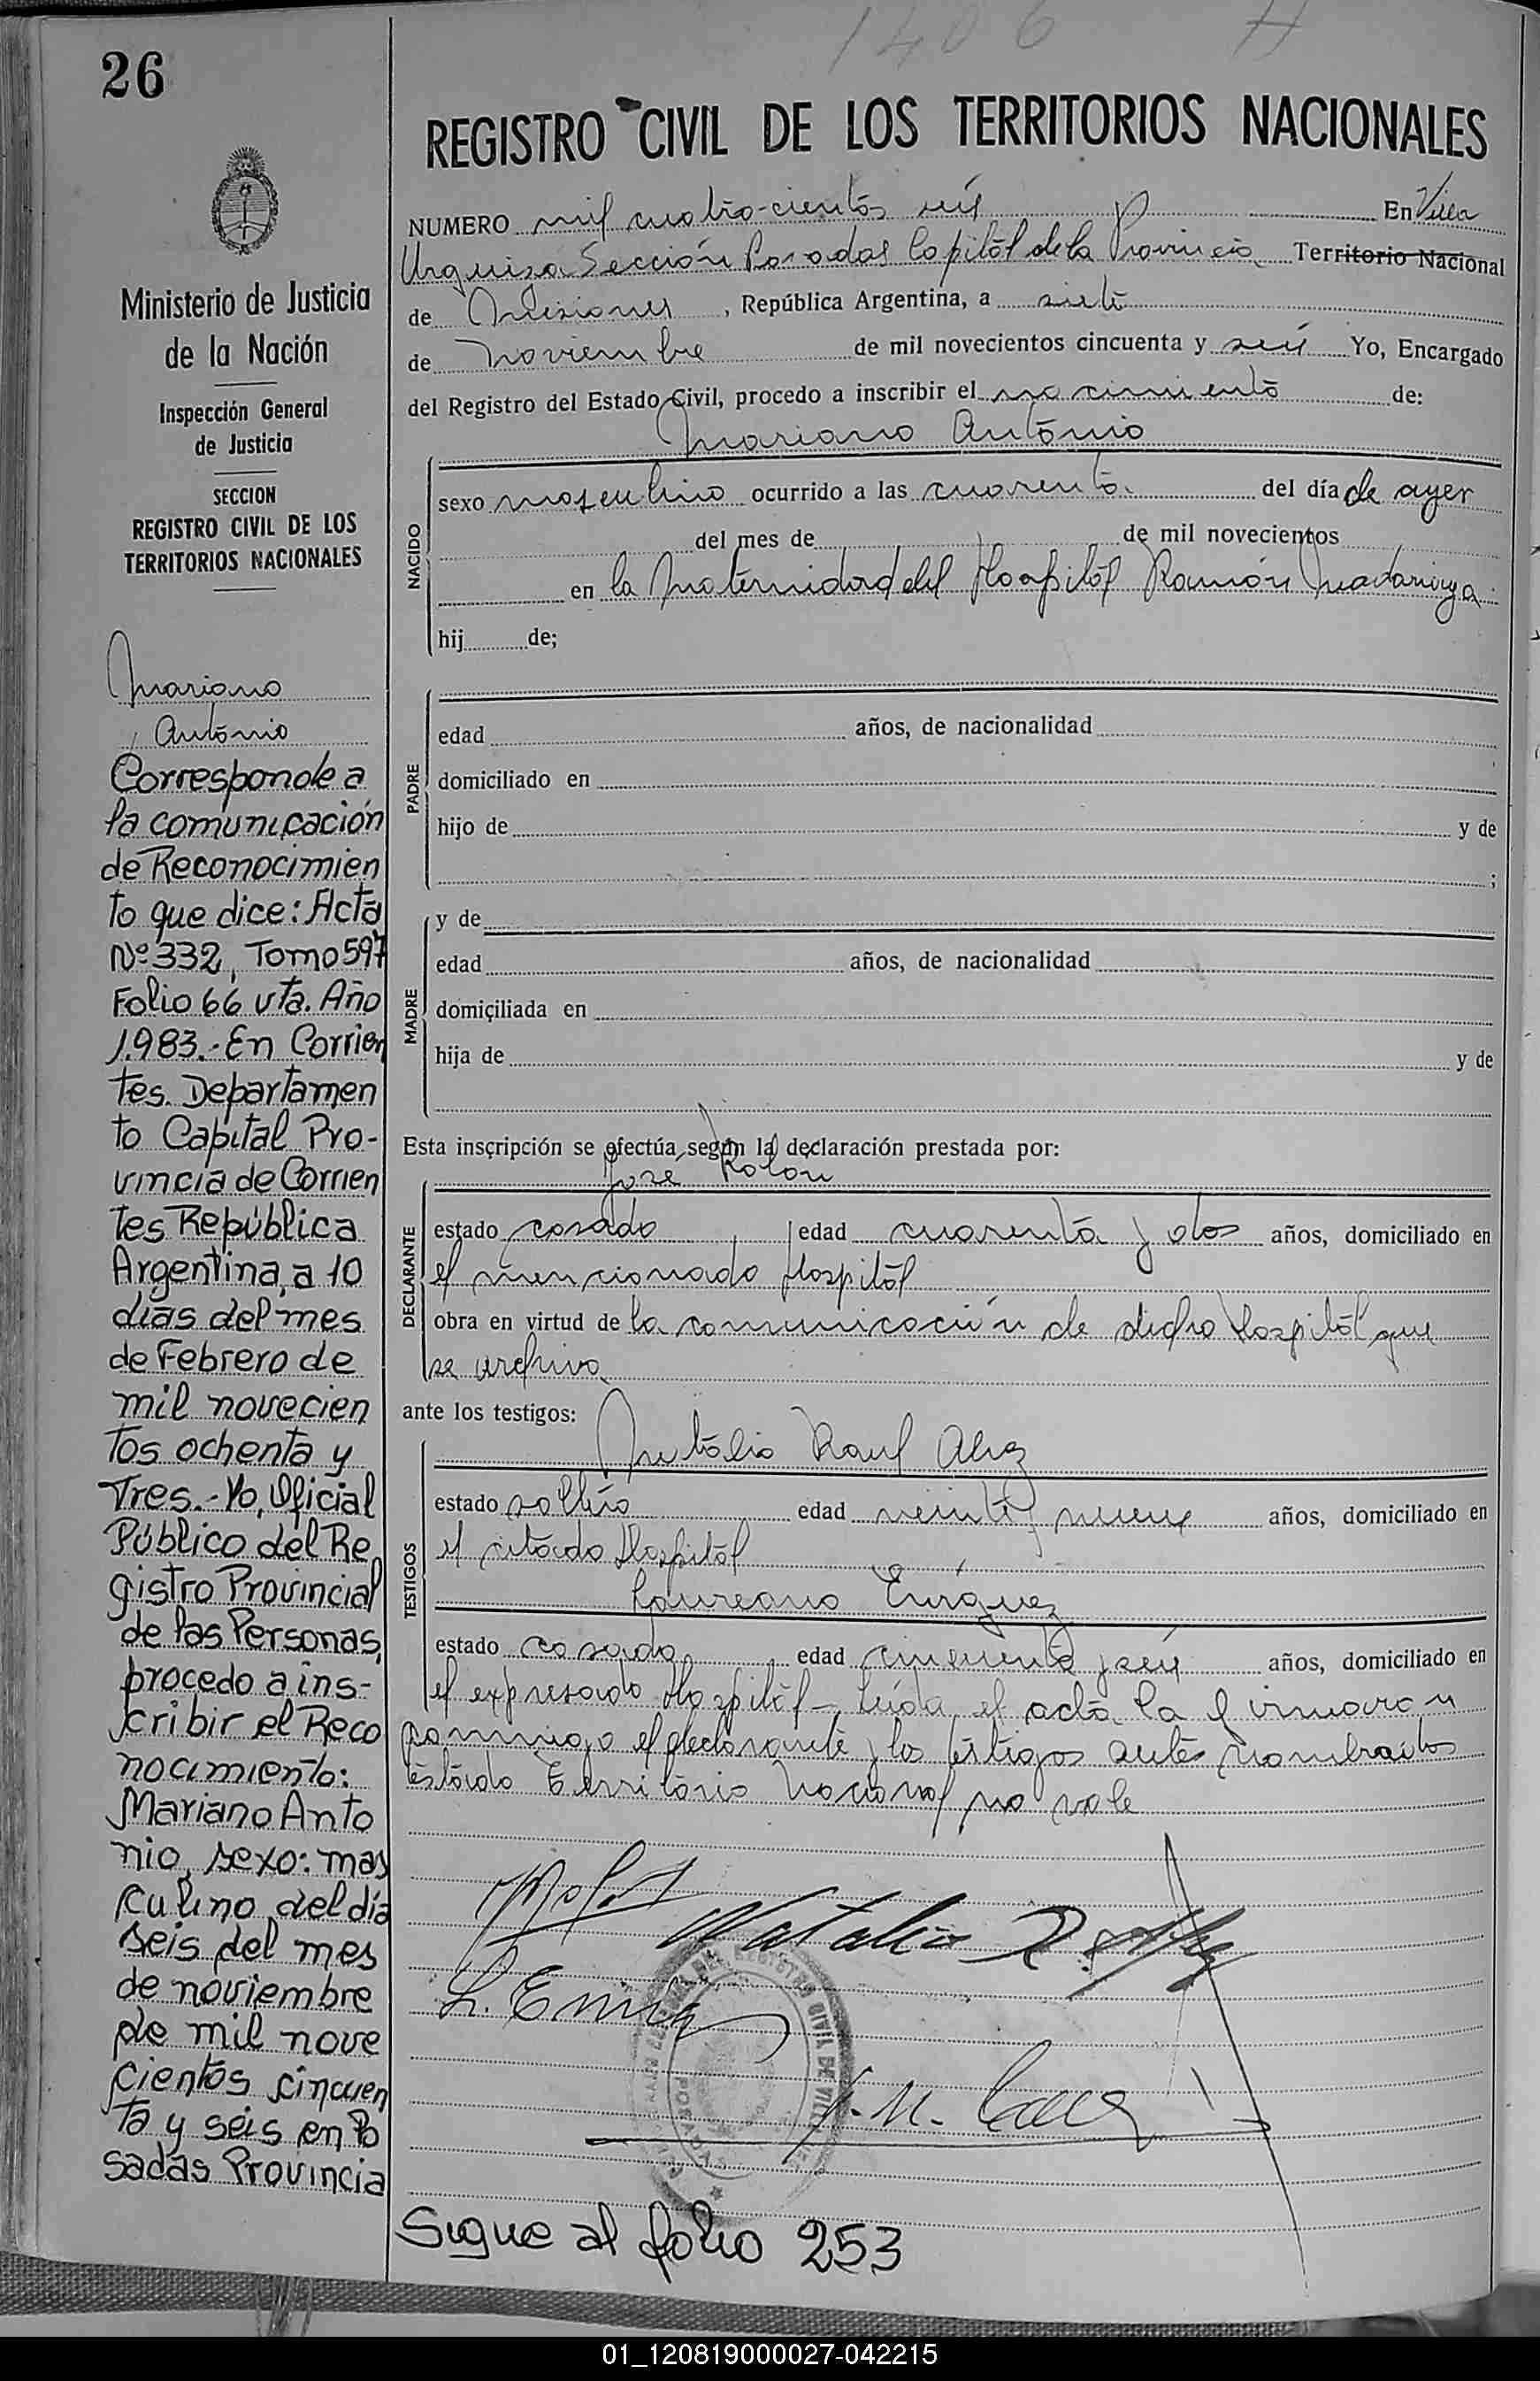 1406 H
26
REGISTRO CIVIL DE LOS TERRITORIOS NACIONALES
Ministerio de Justicia
de la Nación
Inspección General
de Justicia
SECCION
REGISTRO CIVIL DE LOS
TERRITORIOS NACIONALES
Mariano
Antonio
Corresponde a
la comunicación
de Reconocimien
to que dice: Acta
Nº 332, Tomo 597
Folio 66 vta. Año
1.983.- En Corrien
tes. Departamen
to Capital Pro-
vincia de Corrien
tes República
Argentina, a 10
días del mes
de Febrero de
mil novecien
tos ochenta y
Tres.- Yo, Oficial
Público del Re
gistro Provincial
de las Personas,
procedo a ins-
cribir el Reco
nocimiento:
Mariano Anto
nio, sexo: mas
culino del día
seis del mes
de noviembre
de mil nove
cientos cincuen
ta y seis en Po
sadas Provincia
NUMERO mil cuatro-cientos seis En Villa
Urquiza Sección Posadas Capital de la Provincia Territorio Nacional
de Misiones, República Argentina, a siete
de Noviembre de mil novecientos cincuenta y seis Yo, Encargado
del Registro del Estado Civil, procedo a inscribir el nacimiento de:
Mariano Antonio
NACIDO
sexo masculino ocurrido a las cuarenta del día de ayer
del mes de de mil novecientos
en la Maternidad del Hospital Ramón Madariaga
hij de;
PADRE
edad años, de nacionalidad
domiciliado en
hijo de y de
;
MADRE
y de
edad años, de nacionalidad
domiciliada en
hija de y de
Esta inscripción se efectúa según la declaración prestada por:
José Rolon
DECLARANTE
estado casado edad cuarenta y dos años, domiciliado en
el mencionado Hospital
obra en virtud de la comunicación de dicho Hospital que
se archiva
ante los testigos:
TESTIGOS
Natalio Raul Alvez
estado soltero edad veinte y nueve años, domiciliado en
el citado Hospital
Laureano Enriquez
estado casado edad cincuenta y seis años, domiciliado en
el expresado Hospital - Leída el acta la firmaron
conmigo el declarante y los testigos antes nombrados
testado Territorio Nacional no vale
Natalio R.
L. Enriq
POSADAS
Sigue al folio 253
01_120819000027-042215